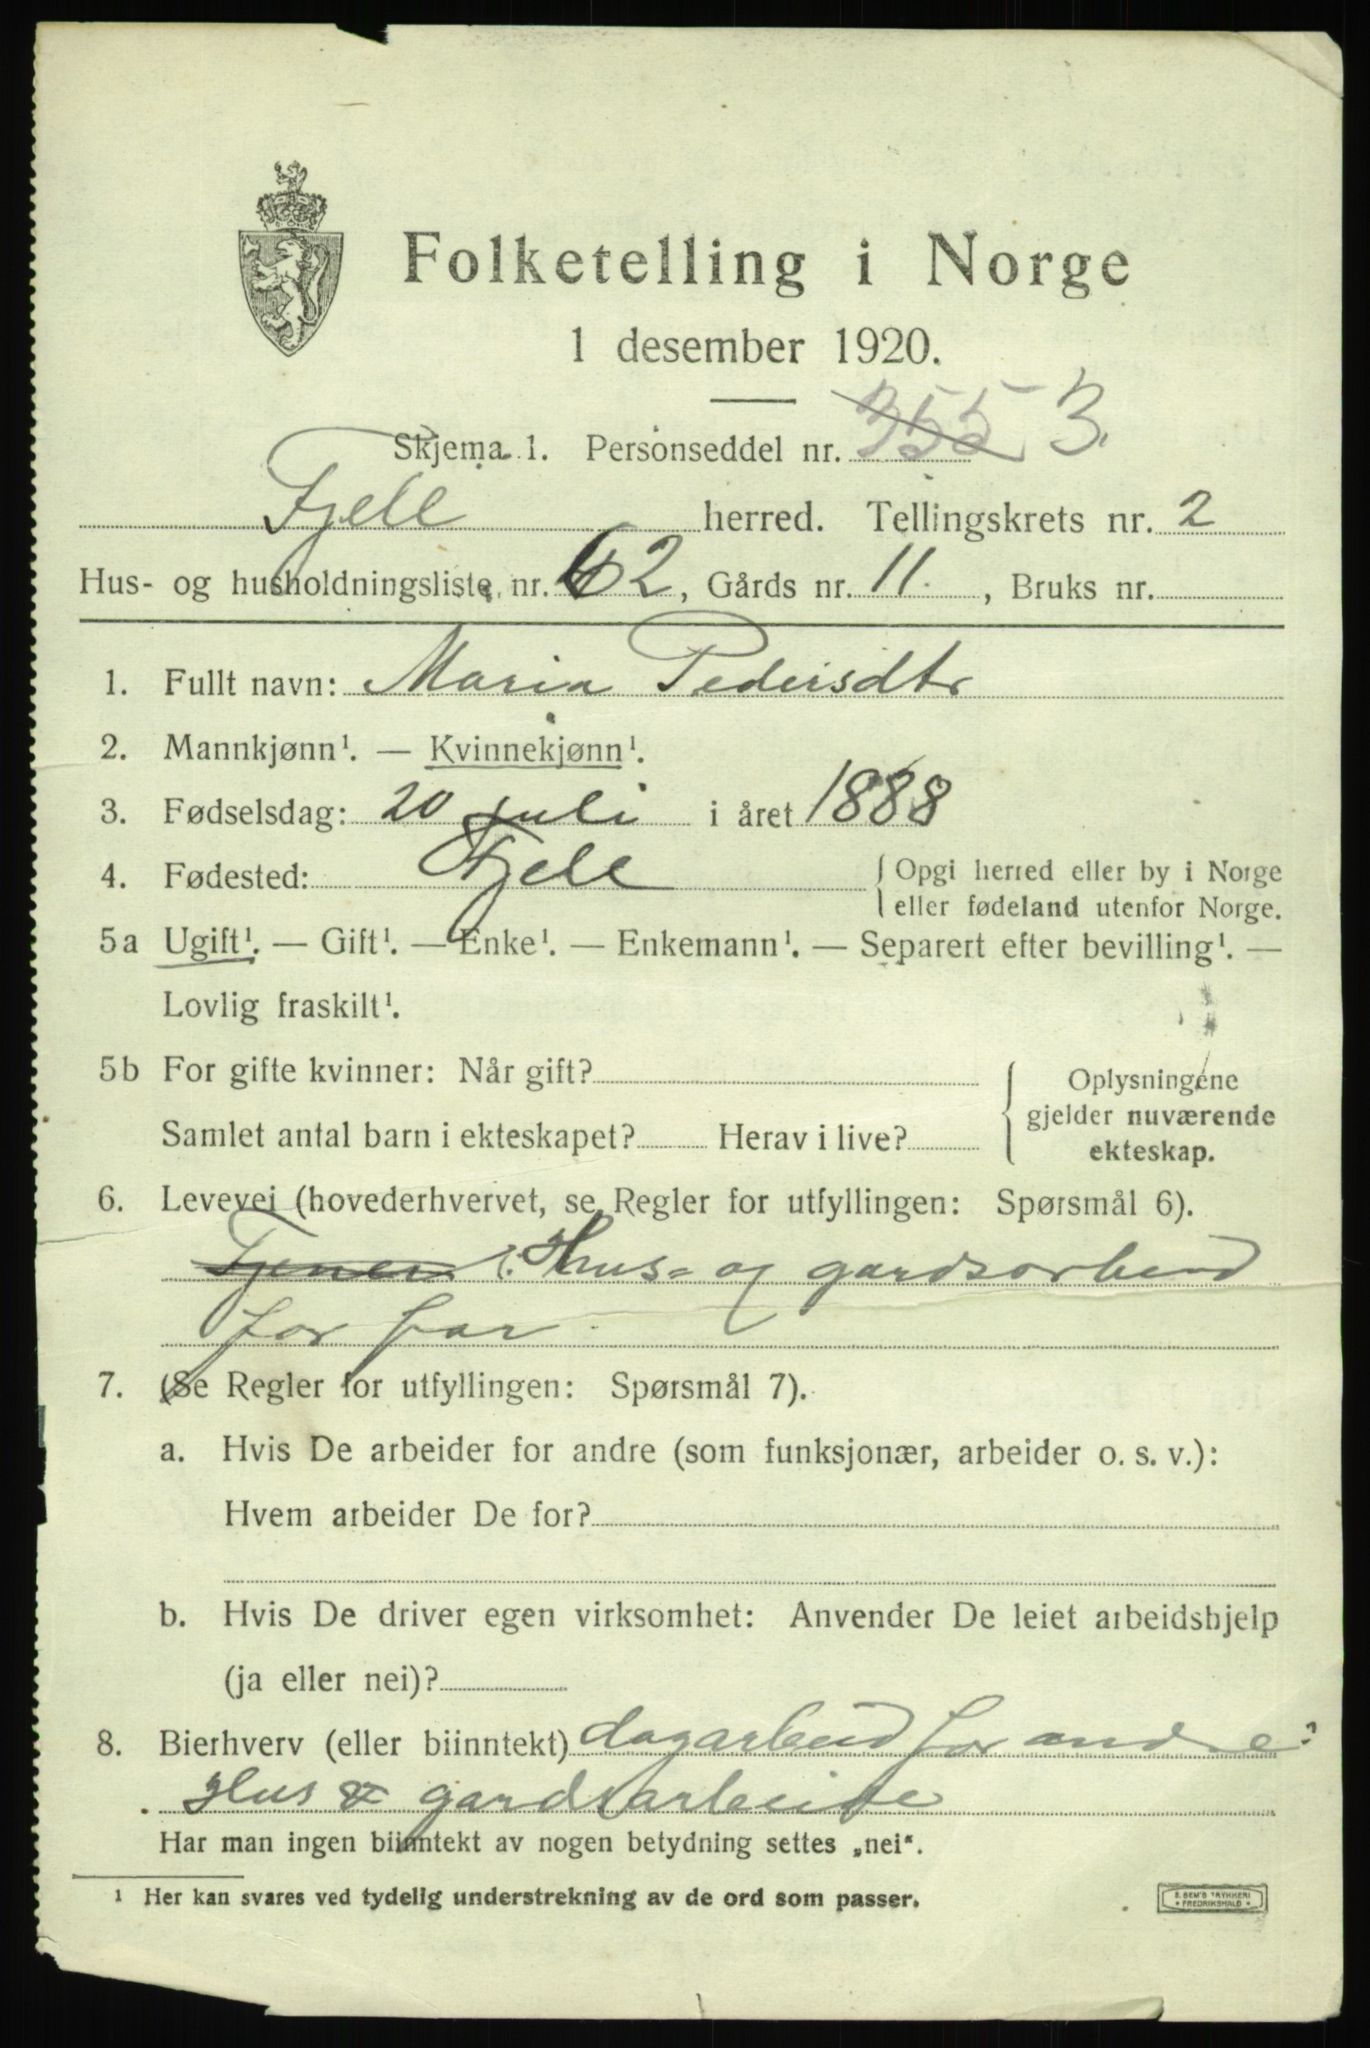 Folketelling i Norge
1 desember 1920.
Skjema 1. Personseddel nr. 355 3.
Fjell herred. Tellingskrets nr. 2
Hus- og husholdningsliste nr. 62, Gårds nr. 11., Bruks nr.
1. Fullt navn: Maria Pedersdtr
2. Mannkjønn¹. — Kvinnekjønn¹.
3. Fødselsdag: 20 juli i året 1888
4. Fødested: Fjell { Opgi herred eller by i Norge
eller fødeland utenfor Norge.
5a Ugift¹. — Gift¹. — Enke¹. — Enkemann¹. — Separert efter bevilling¹. —
Lovlig fraskilt¹.
5b For gifte kvinner: Når gift?
Samlet antal barn i ekteskapet? Herav i live?
Oplysningene
gjelder nuværende
ekteskap.
6. Levevei (hovederhvervet, se Regler for utfyllingen: Spørsmål 6).
Tjener Hus- og gardsarbeid
for far.
7. (Se Regler for utfyllingen: Spørsmål 7).
a. Hvis De arbeider for andre (som funksjonær, arbeider o. s. v.):
Hvem arbeider De for?
b. Hvis De driver egen virksomhet: Anvender De leiet arbeidshjelp
(ja eller nei)?
8. Bierhverv (eller biinntekt) dagarbeid for andre:
Hus & gardsarbeide
Har man ingen biinntekt av nogen betydning settes „nei“.
¹ Her kan svares ved tydelig understrekning av de ord som passer.
E. SEM'S TRYKKERI
* FREDRIKSHALD *